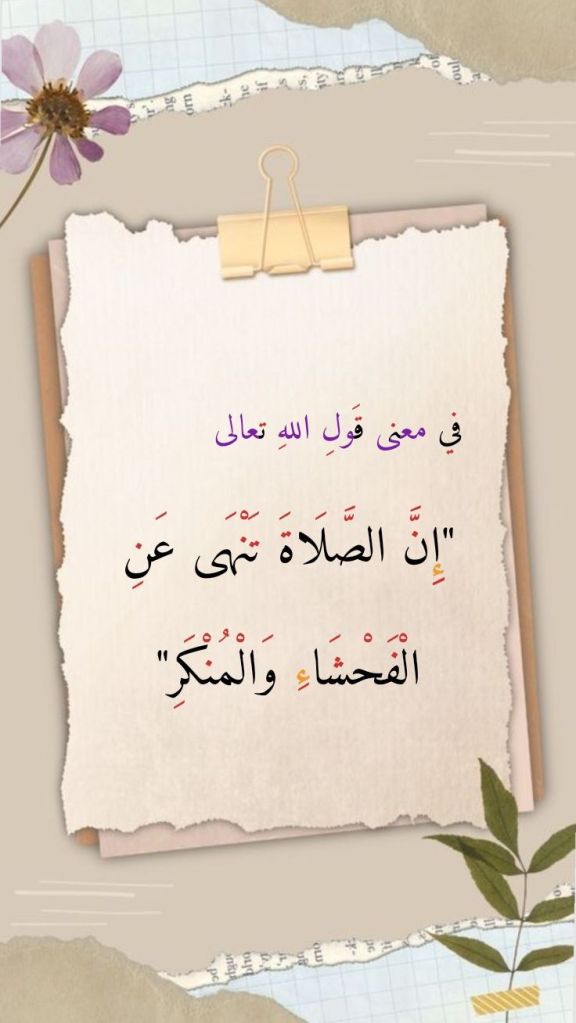 في معنى قَولِ اللهِ تعالى
"إِنَّ الصَّلَاةَ تَنْهَى عَنِ
الْفَحْشَاءِ وَالْمُنْكَرِ"